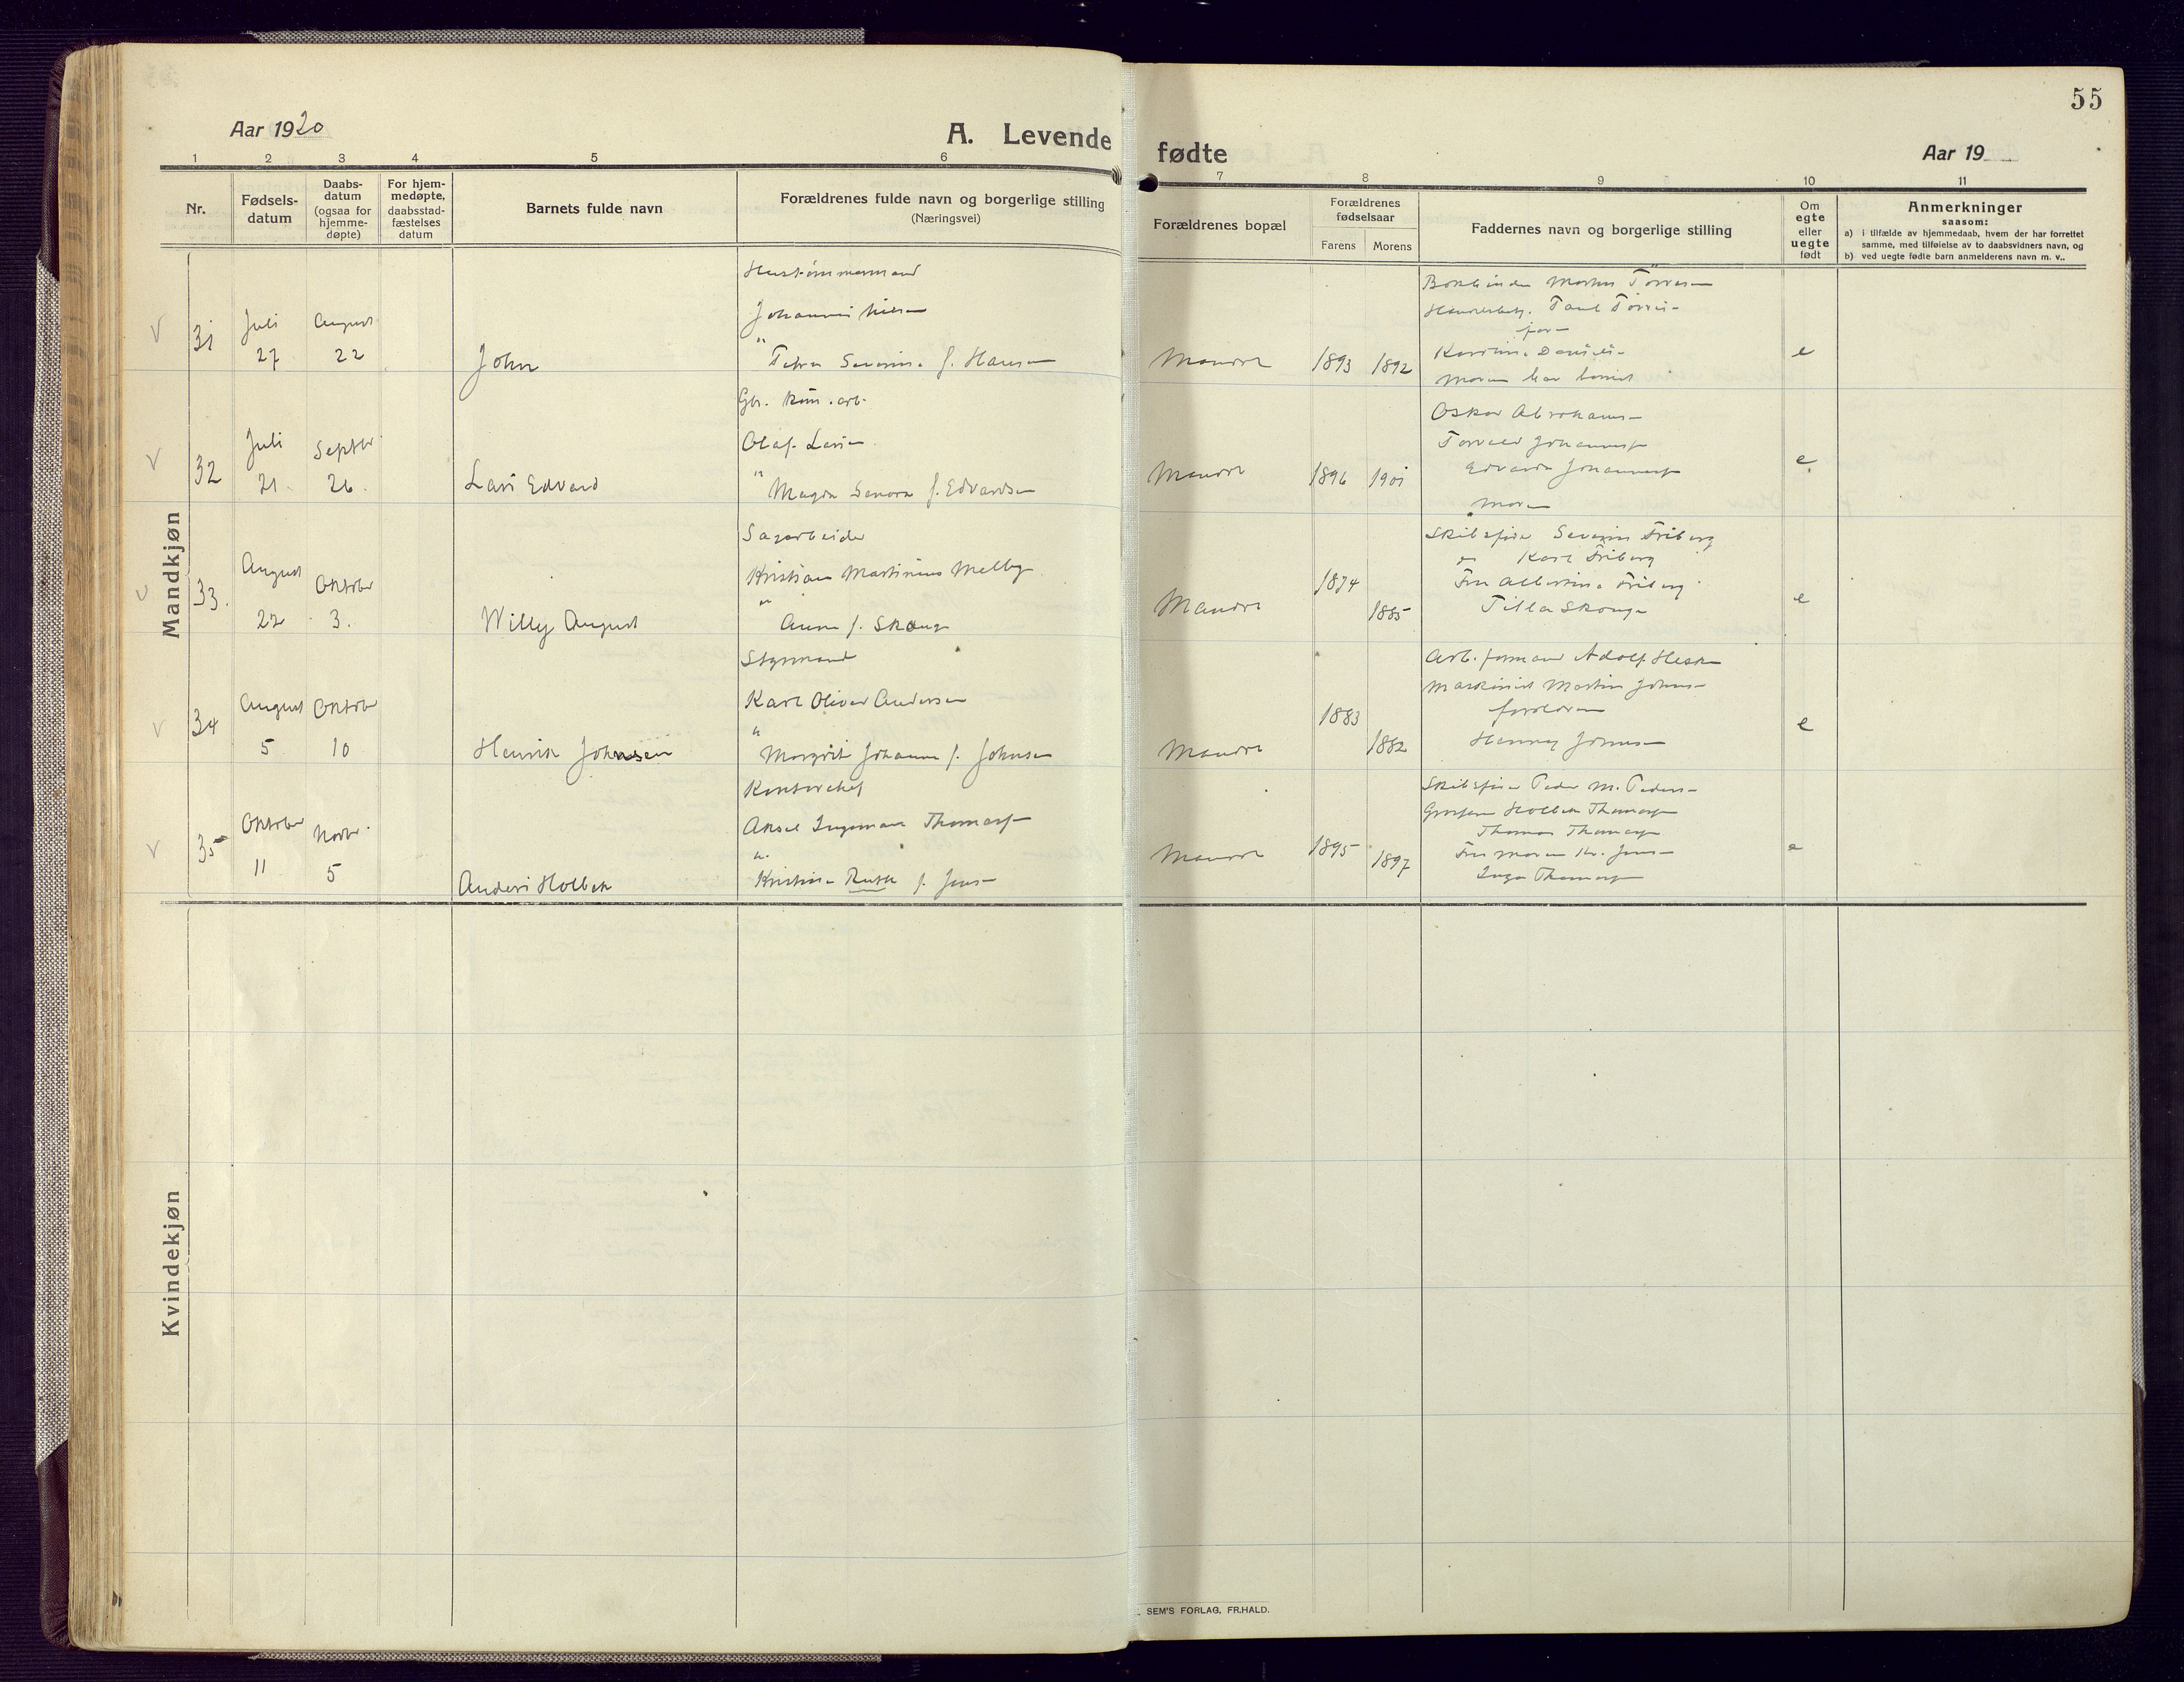 55
Aar 1920
A. Levende fødte
Aar 19
1 2 3 4 5 6 7 8 9 10 11
Nr.
Fødsels-
datum
Daabs-
datum
(ogsaa for
hjemme-
døpte)
For hjem-
medøpte,
daabsstad-
fæstelses
datum
Barnets fulde navn
Forældrenes fulde navn og borgerlige stilling
(Næringsvei)
Forældrenes bopæl
Forældrenes
fødselsaar
Farens
Morens
Faddernes navn og borgerlige stilling
Om
egte
eller
uegte
født
Anmerkninger
saasom:
a) i tilfælde av hjemmedaab, hvem der har forrettet
samme, med tilføielse av to daabsvidners navn, og
b) ved uegte fødte barn anmelderens navn m. v..
Mandkjøn
31
Juli
27
August
22
John
Hustømmermand
Johannes Nilsen
" Petra Severine f. Hansen
1893
1892
far
moren har baaret
e
32
Juli
21
Septbr.
26.
Lars Edvard
Olaf Larsen
" Magda f. Edvardsen
1896
1901
Oskar Abrahams
Edvarda Johannes
Moren
e
33.
August
22
Oktober
3.
Willy August
Sagarbeider
Kristian Martinius Melby
" Anna f. Skauge
1874
1885
Skibsfører Severin Friberg
Karl Friberg
Fru Albertine Friberg
Tilla Skauge
e
34
August
5
Oktober
10
Henrik Johnsen
Styrmand
Karl Oliver Andersen
" Margrit Johanne f. Johnsen
1883
1882
Arb. formand Adolf
Maskinist Martin Johns
forældrene
Henny Johnsen
e
35
Oktober
11
Novbr.
5
Anders Holbek
Kontorchef
Aksel Ingemann Thomas
" Kristine Ruth f. Jens
1895
1897
Skibsfører Peder M. Peders
Holbek Thomas
Thomas Thomas
Fru Maren Kr. Jens
Inga Thomas
e
Kvindekjøn
SEM'S FORLAG, FR.HALD.